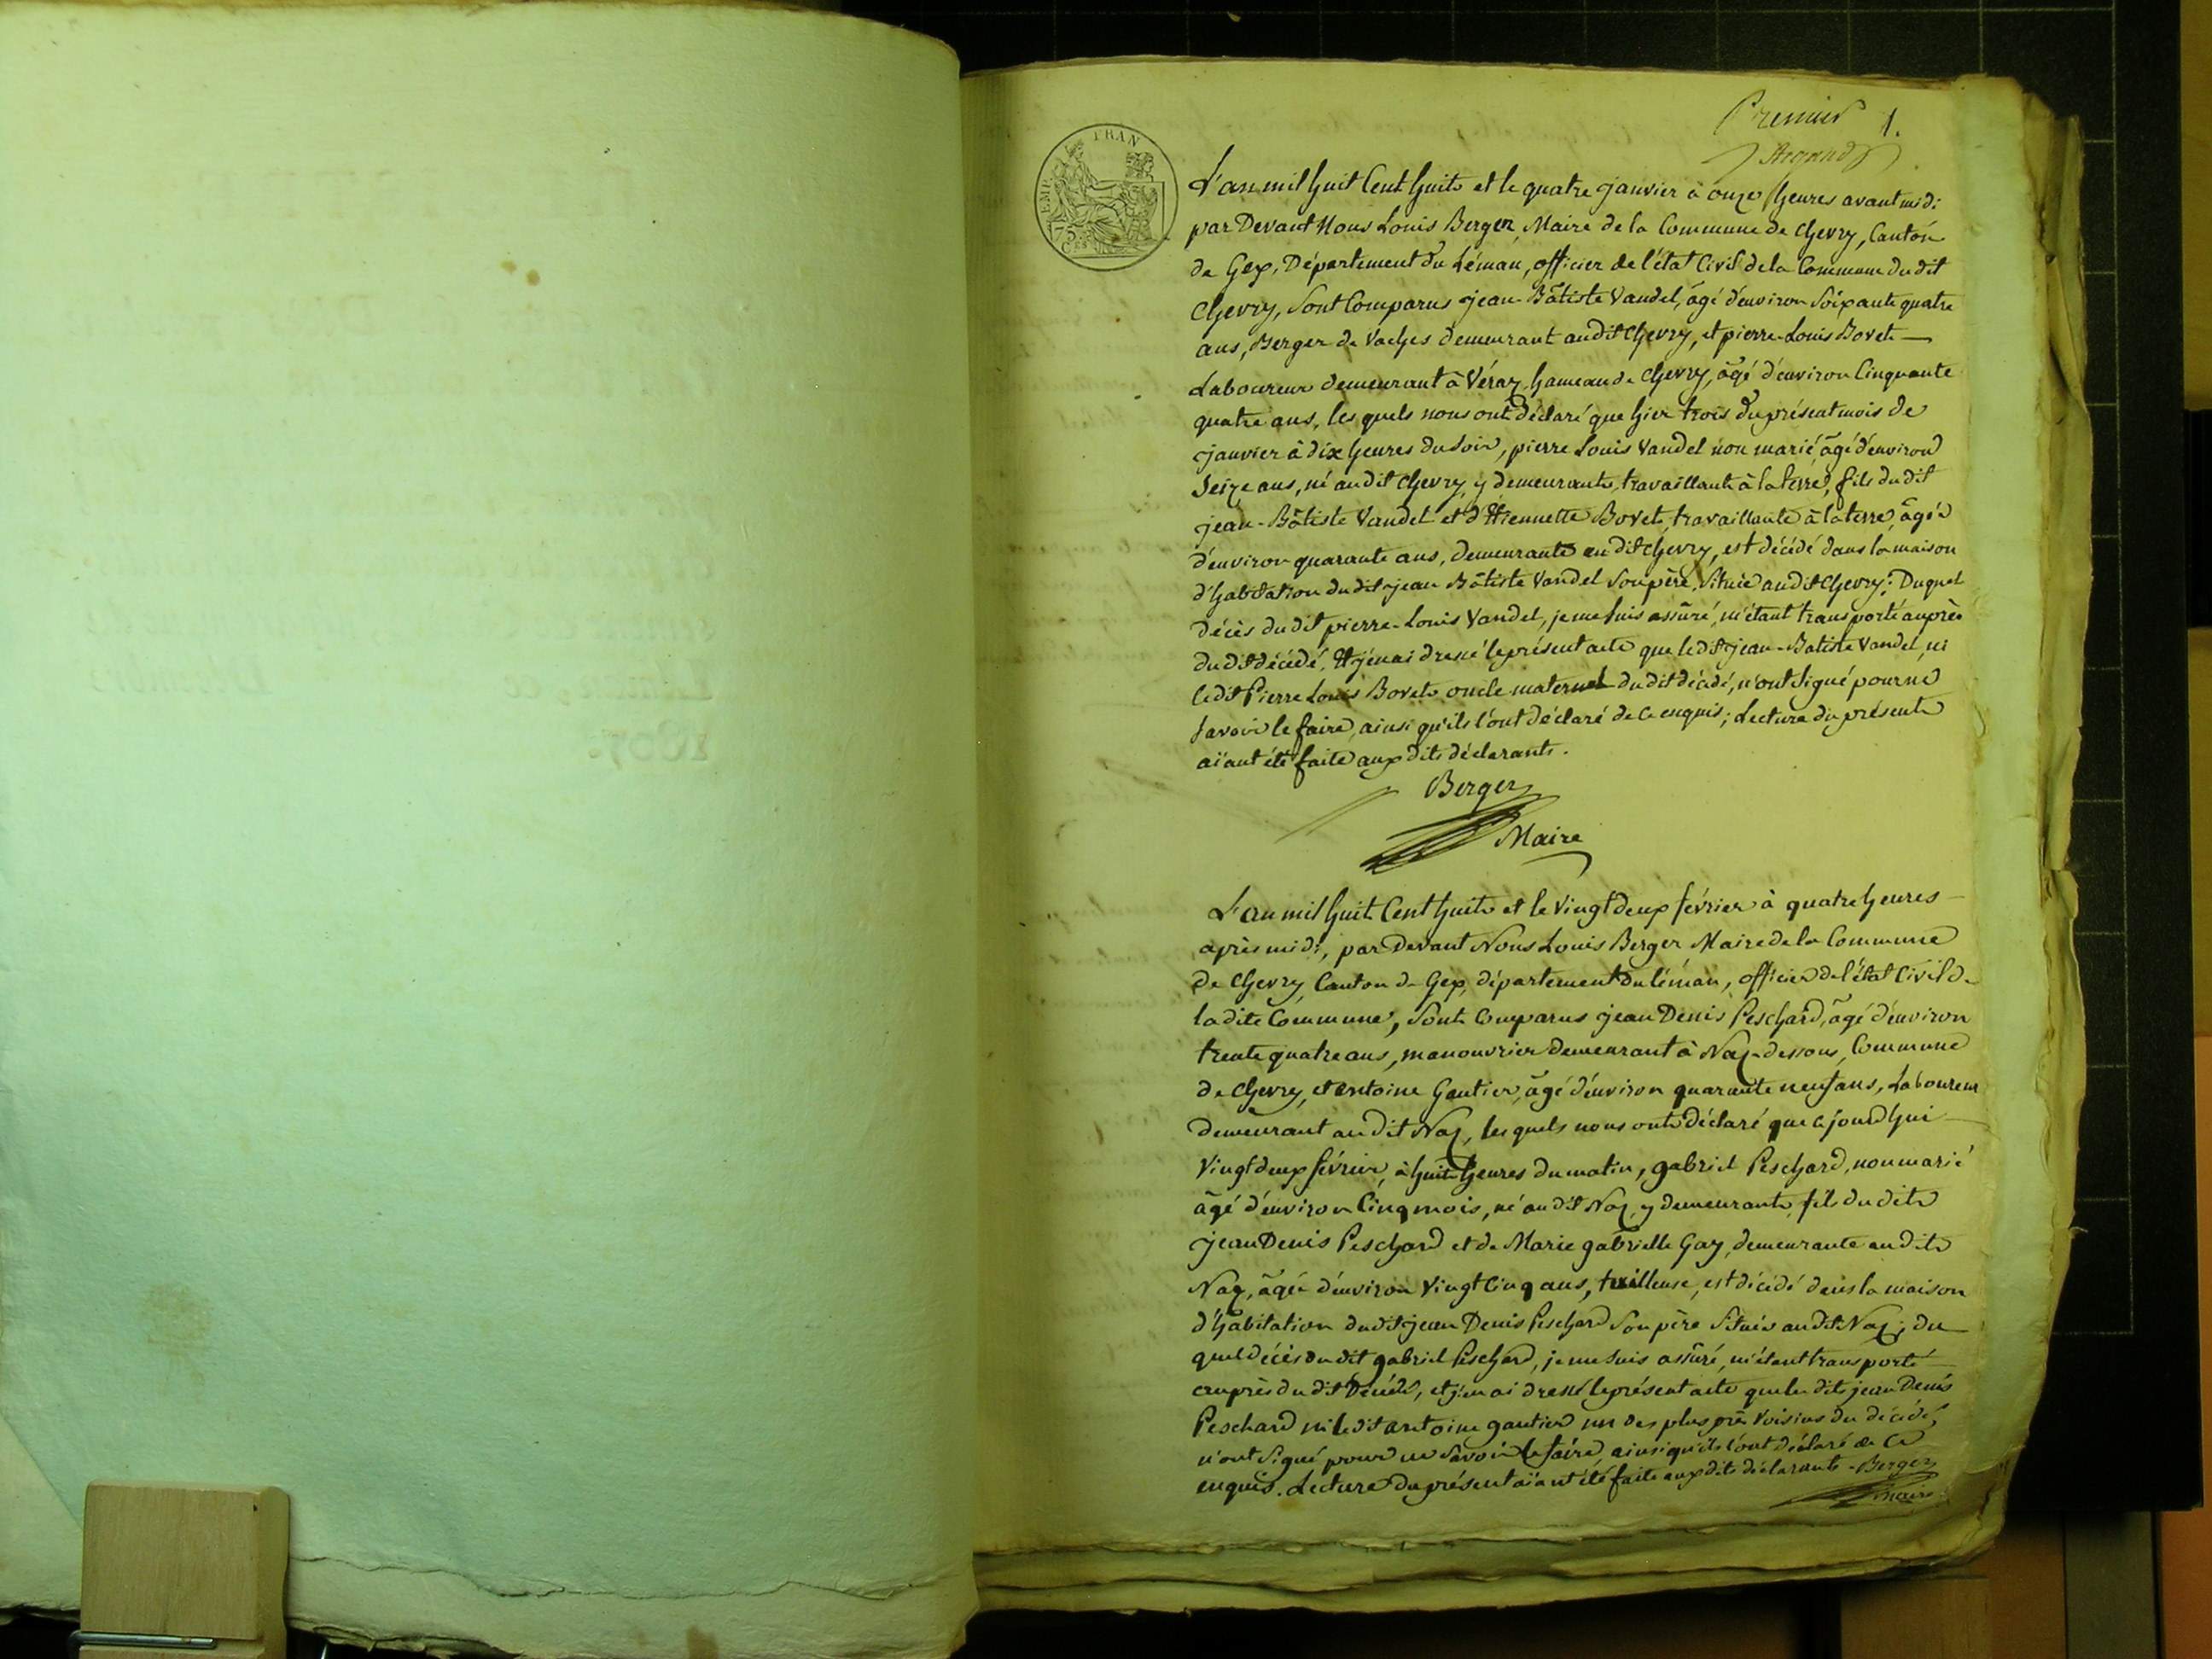 Premier 1.
Argand
EMP. FRAN
L'an mil huit Cent huit et le quatre janvier à onze heures avant midi
par Devant Nous Louis Berger, Maire de la Commune de Chevry, Canton
de Gex, Département du Léman, officier de l'état Civil de la Commune du dit
Chevry, sont Comparus jean-Bâtiste Vandel, âgé d'environ soixante quatre
ans, Berger de Vaches demeurant audit Chevry, et pierre-Louis Bovet
Laboureur demeurant à Véraz, hameau de Chevry, âgé d'environ Cinquante
quatre ans, les quels nous ont déclaré que hier trois du présent mois de
janvier à dix heures du soir, pierre Louis Vandel non marié, âgé d'environ
Seize ans, né audit Chevry, y demeurant, travaillant à la terre, fils du dit
jean-Bâtiste Vandel et d'Etiennette Bovet, travaillante à la terre, âgée
d'environ quarante ans, demeurante audit Chevry, est décédé dans la maison
d'habitation du dit jean Bâtiste Vandel son père, située audit Chevry; Duquel
décès du dit pierre-Louis Vandel, je me suis assuré, m'étant transporté auprès
du dit décédé, Et j'en ai dressé le présent acte que ledit jean-Batiste Vandel, ni
ledit Pierre Louis Bovet oncle maternel du dit décédé, n'ont signé pour ne
savoir le faire, ainsi qu'ils l'ont déclaré de ce enquis; Lecture du présent
aïant été faite aux dits déclarants.
Berger
Maire
L'an mil huit Cent huit et le Vingt deux février à quatre heures
après midi, par Devant Nous Louis Berger Maire de la Commune
de Chevry, Canton de Gex, département du léman, officier de l'état Civil de
la dite Commune, sont Comparus jean Denis Peschard, âgé d'environ
trente quatre ans, manouvrier demeurant à Naz-dessous, Commune
de Chevry, et antoine Gautier, âgé d'environ quarante neuf ans, Laboureur
demeurant au dit Naz, les quels nous ont déclaré que cejourd'hui
Vingt deux février, à huit heures du matin, gabriel Peschard, non marié
âgé d'environ Cinq mois, né au dit Naz, y demeurant, fils du dit
jean Denis Peschard et de Marie gabrielle Gay, demeurante au dit
Naz, âgée d'environ Vingt Cinq ans, tailleuse, est décédé dans la maison
d'habitation du dit jean Denis Peschard son père située au dit Naz; du
quel décès du dit gabriel Peschard, je me suis assuré, m'étant transporté
auprès du dit Décédé, et j'en ai dressé le présent acte que le dit jean Denis
Peschard ni le dit antoine gautier un des plus près Voisins du décédé,
n'ont signé pour ne savoir le faire, ainsi qu'ils l'ont déclaré de ce
enquis. Lecture du présent aïant été faite aux dits déclarants - Berger
maire